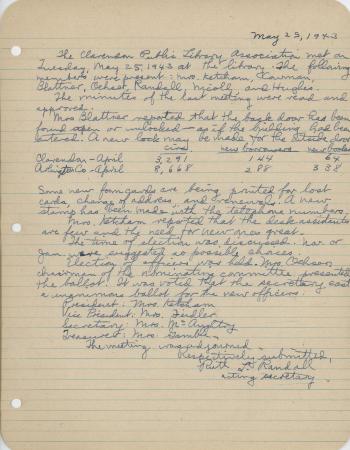 May 25, 1943
The Clarendon Public Library Association met on
Tuesday, May 25, 1943 at the library. The following
members were present: Mrs. Ketcham, Clawman,
Blattner, Ochsen, Randall, Nicoll, and Hughes.
The minutes of the last meeting were read and
approved.
Mrs Blattner reported that the back door has been
found open or unlocked - as if the building had been
entered. A new lock may be made for the
circ. new borrowers new books
Clarendon - April 3,291 144 64
Arlington Co - April 8,668 288 338
Some new forms cards are being printed for lost
cards, change of address, and renewals. A new
stamp has been made with the telephone numbers.
Mrs. Ketcham reported that the desk
are few and the need for new ones great.
The time of election was discussed. Nov. or
Jan. are suggested as possible choices.
Election of officers was held. Mrs. Ochsen,
chairman of the nominating committee presented
the ballot. It was voted that the secretary cast
a unanimous ballot for the new officers.
President: Mrs. Ketcham
Vice President: Mrs. Fiedler
Secretary: Mrs. McAuley
Treasurer: Mrs. Gamble
The meeting was adjourned.
Respectively submitted,
Ruth L. Randall
acting secretary